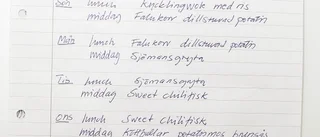 Sön lunch Kycklingwok med ris
middag Falukorv dillstuvad potatis
Mån lunch Falukorv dillstuvad potatis
middag Sjömansgryta
Tis lunch Sjömansgryta
middag Sweet chilifisk
Ons lunch Sweet chilifisk
middag Köttbullar potatismos